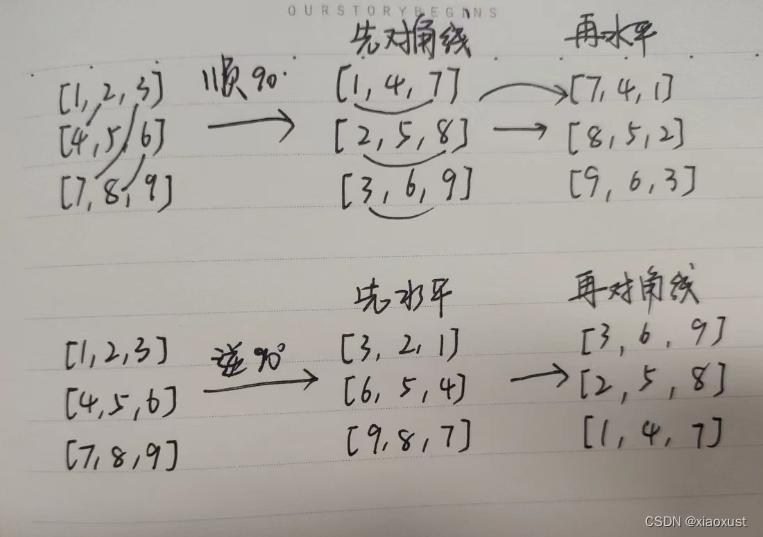 OURSTORYBEGINS
先对角线 再水平
顺90°
[1,2,3] [1,4,7] [7,4,1]
[4,5,6] [2,5,8] [8,5,2]
[7,8,9] [3,6,9] [9,6,3]
先水平 再对角线
逆90°
[1,2,3] [3,2,1] [3,6,9]
[4,5,6] [6,5,4] [2,5,8]
[7,8,9] [9,8,7] [1,4,7]
CSDN @xiaoxust